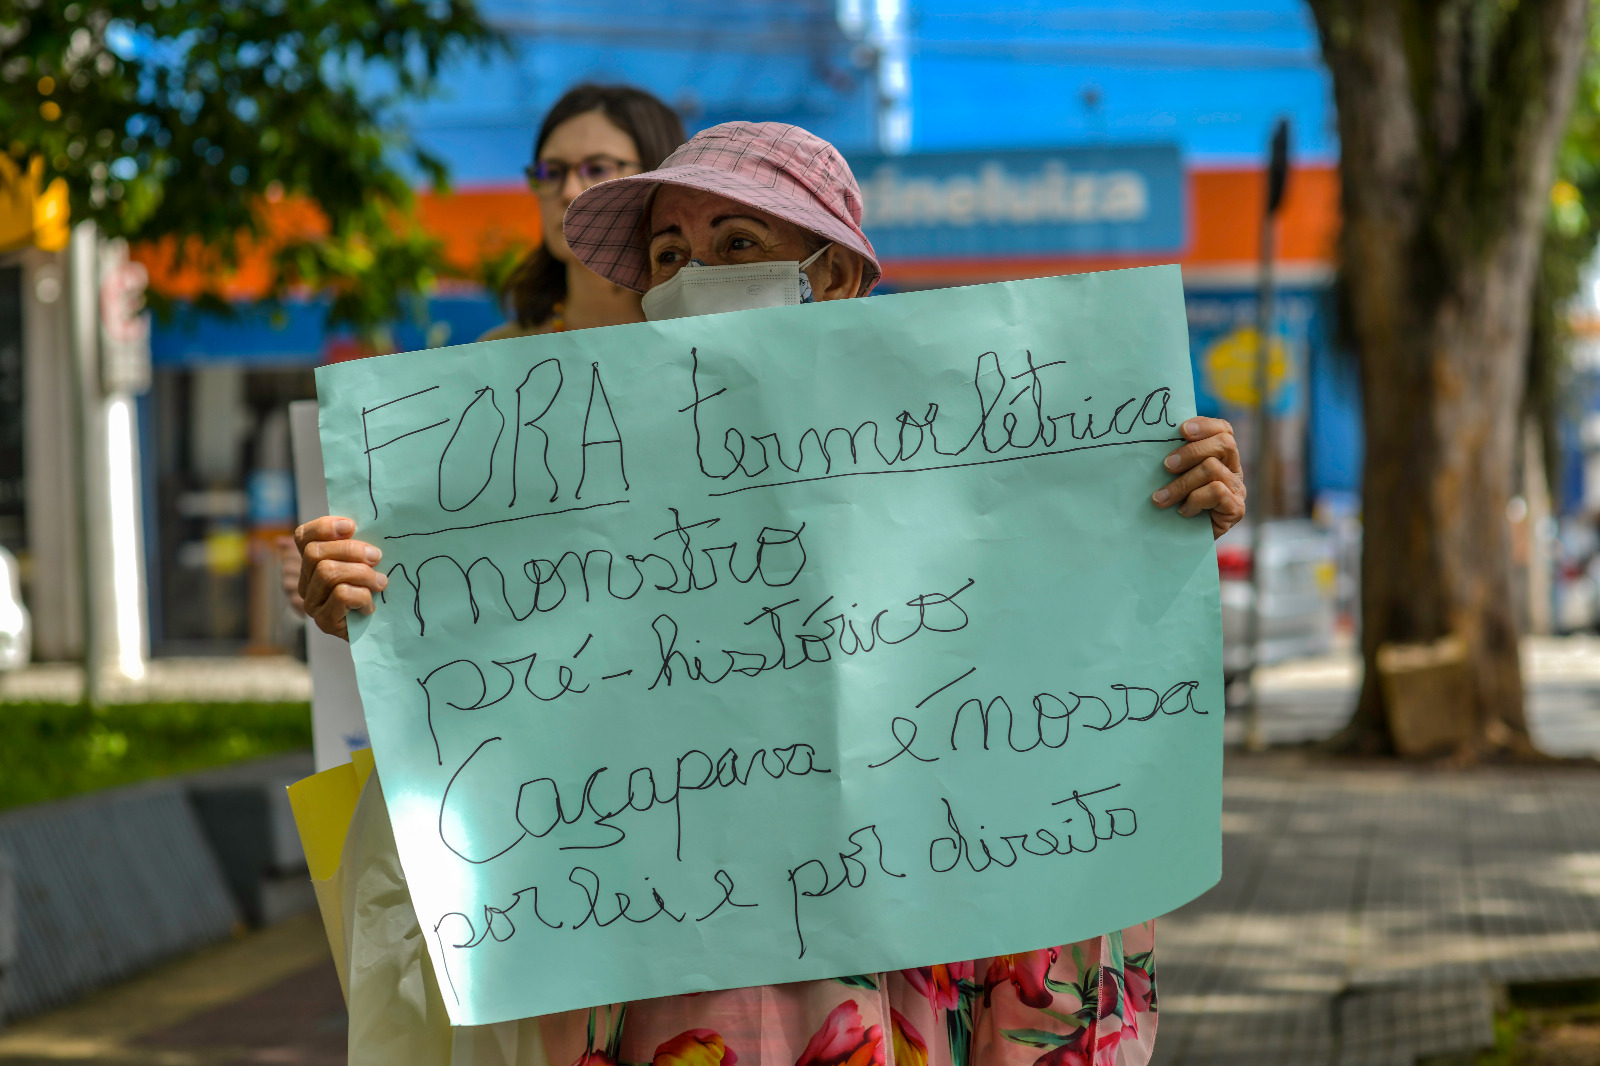 zineluiza
FORA termorlétrica
monstro
pré-histórico
Caçapava é nossa
por lei e por direito